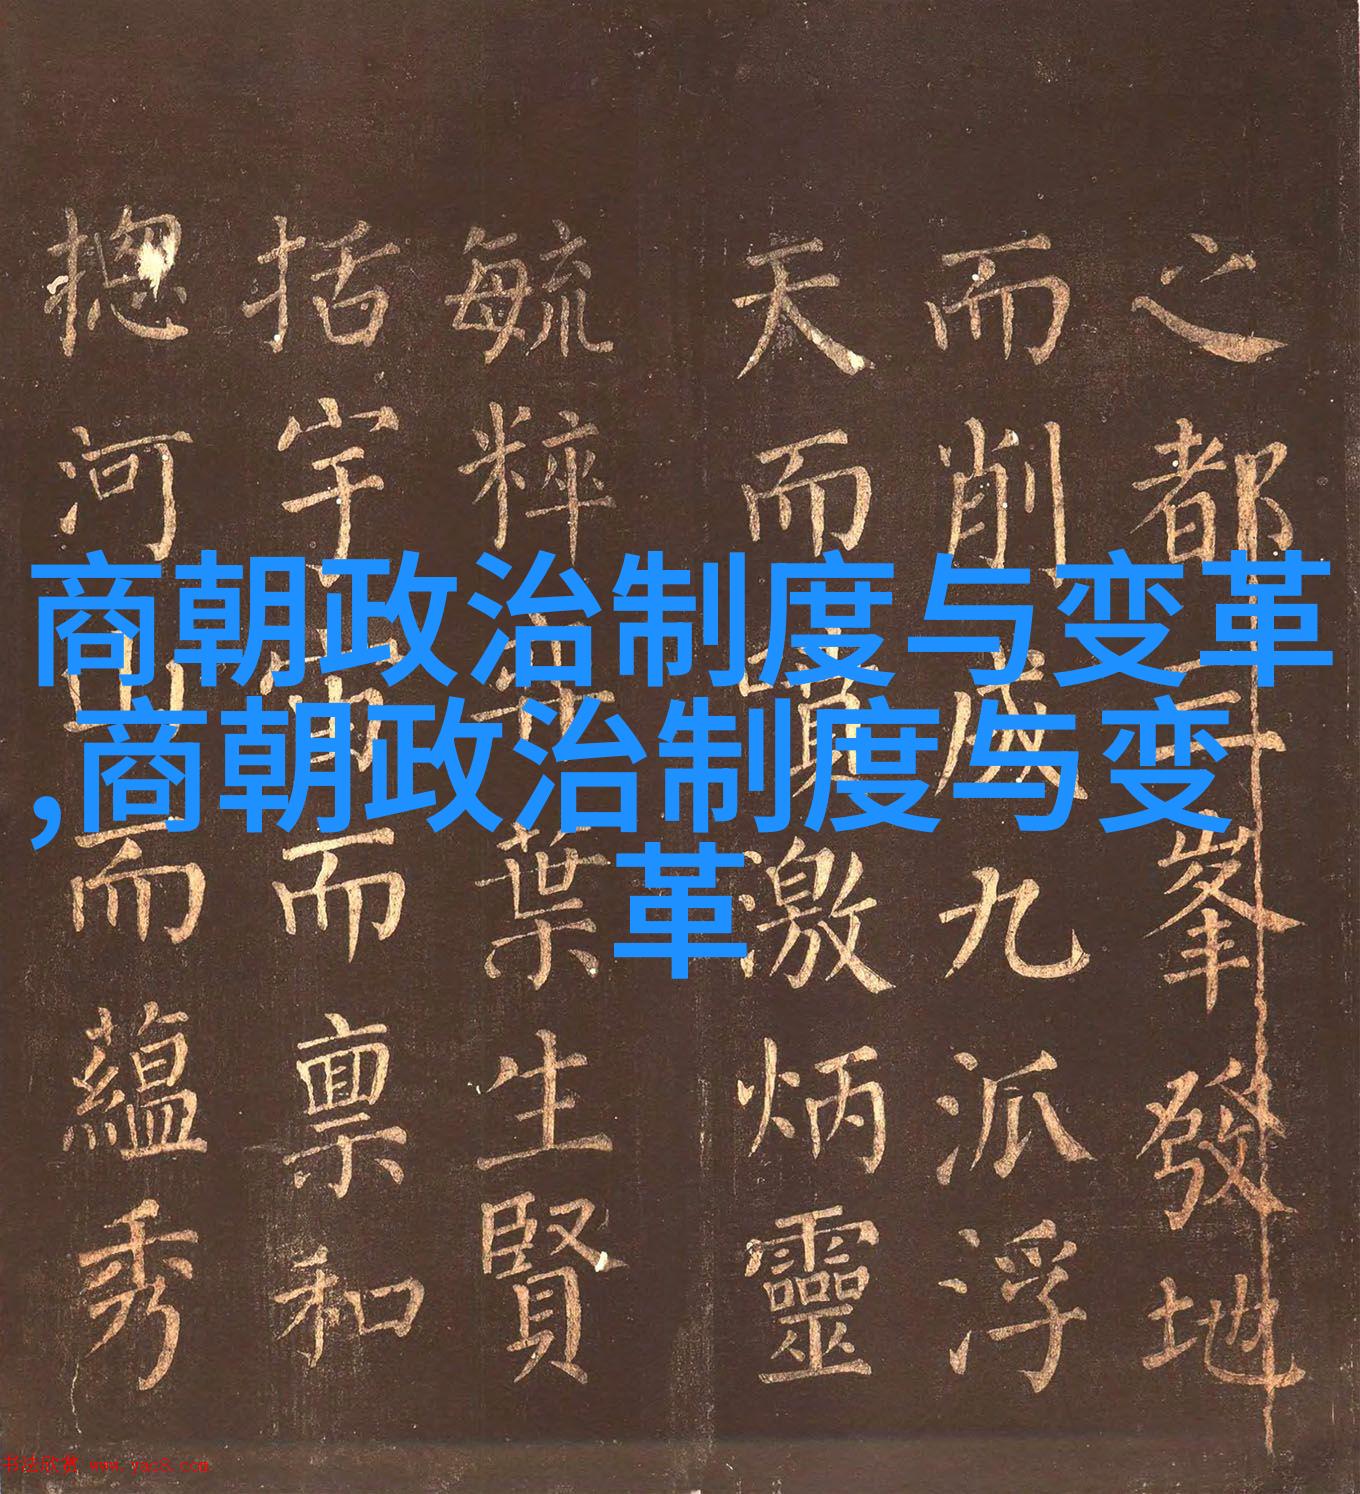 商朝政治制度与变革
,商朝政治制度与变
革
之都三峯發地
而削成九派浮
天而噴激炳靈
毓粹葉生賢
括宇宙而禀和
揔河山而蘊秀
书法欣赏 www.yac8.com